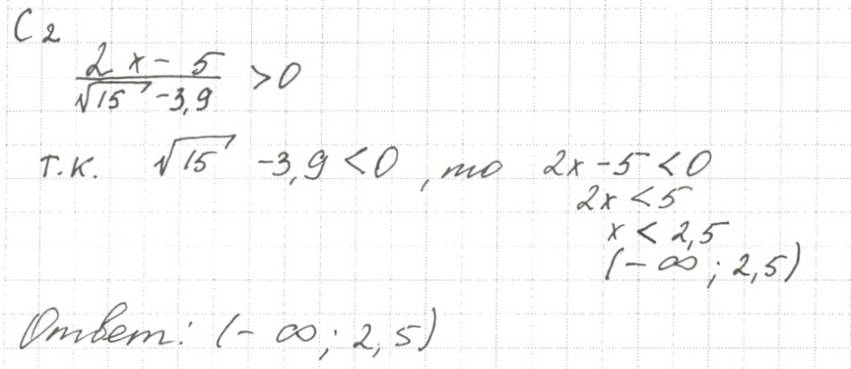 C2
(2x - 5)/(√15 - 3,9) > 0
т.к. √15 - 3,9 < 0, то 2x - 5 < 0
2x < 5
x < 2,5
(-∞; 2,5)
Ответ: (-∞; 2,5)